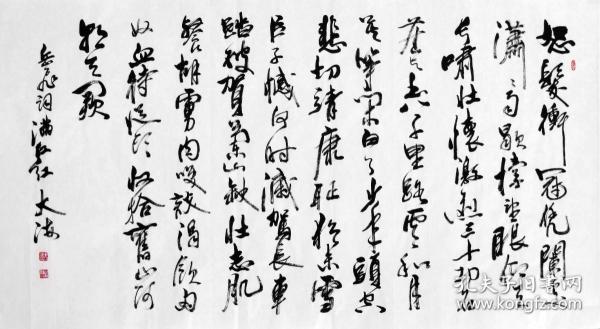 怒髮衝冠凭闌處
瀟雨歇抬望眼仰天
長嘯壯懷激烈三十功名
塵與土八千里路雲和月
莫等閑白了少年頭空
悲切靖康耻猶未雪
臣子憾何時滅駕長車
踏破賀蘭山缺壯志飢
餐胡虜肉笑談渴飲匈
奴血待從頭收拾舊山河
朝天闕
岳飛詞滿江紅 大海
孔夫子旧书网
www.kongfz.com